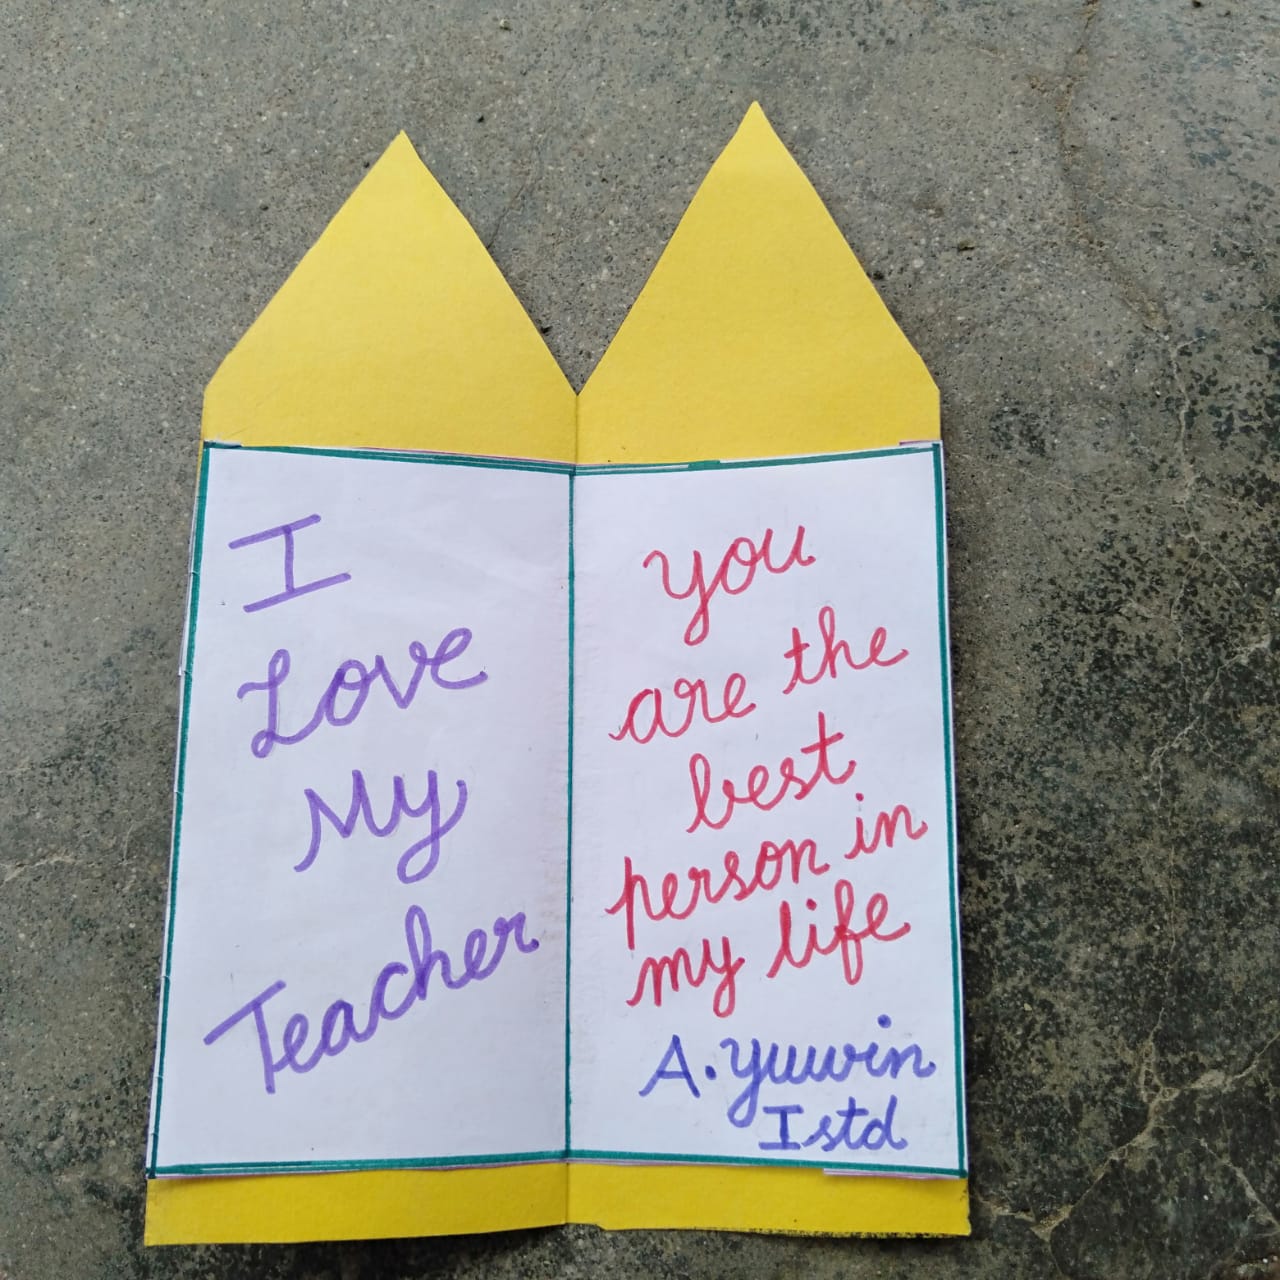 I
Love
My
Teacher
you
are the
best
person in
my life
A. Yuwin
I std